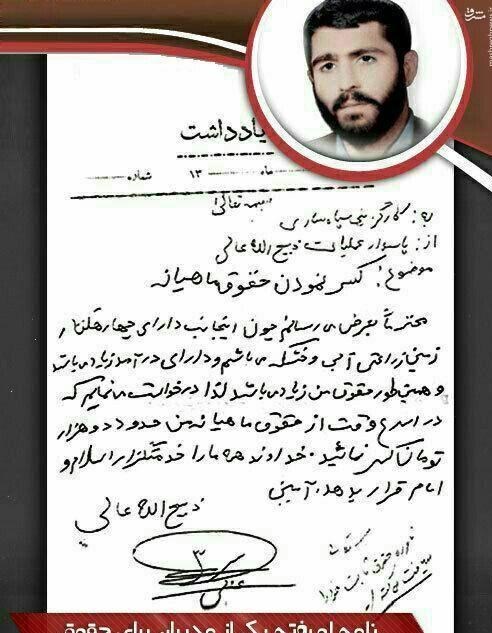 مشرق
یادداشت
ماه ۱۳ شماره
بسمه تعالی
به: کارگزینی سپاه ساری
از: پاسدار عملیات ذبیح الله عالی
موضوع: کسر نمودن حقوق ماهیانه
محترماً بعرض می رسانم چون اینجانب دارای چهار هکتار
زمین زراعتی آبی و خشکه می باشم و دارای درآمد زیاد می باشد
و همینطور حقوق من زیاد می باشد لذا درخواست می نمایم که
در اسرع وقت از حقوق ماهیانه من حدود دو هزار
تومان کسر نمائید. خداوند همه ما را خدمتگزار اسلام و
امام قرار بدهد. آمین
ذبیح الله عالی
۳
نامه
یکی از مدیران برای حقوق